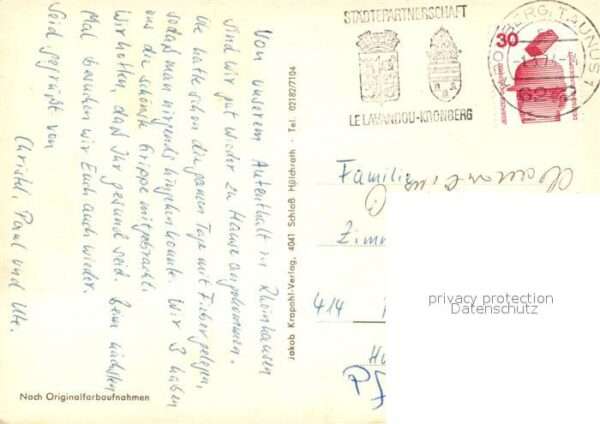 Von unserem Aufenthalt in Rheinhausen
sind wir gut wieder zu Hause angekommen.
Ute hatte schon die ganzen Tage mit Fieber gelegen,
sodaß man nirgends hingehen konnte. Wir 3 haben
uns die schönste Grippe mitgebracht.
Wir hoffen, daß Ihr gesund seid. Beim nächsten
Mal besuchen wir Euch auch wieder.
Seid gegrüßt von
Christel, Paul und Ute.
Nach Originalfarbaufnahmen
Jakob Krapohl-Verlag, 4041 Schloß Hülchrath · Tel. 02182/7104
STÄDTEPARTNERSCHAFT
LE LAVANDOU-KRONBERG
BERG, TAUNUS 1
30
Familie
Zimm
414
privacy protection
Datenschutz